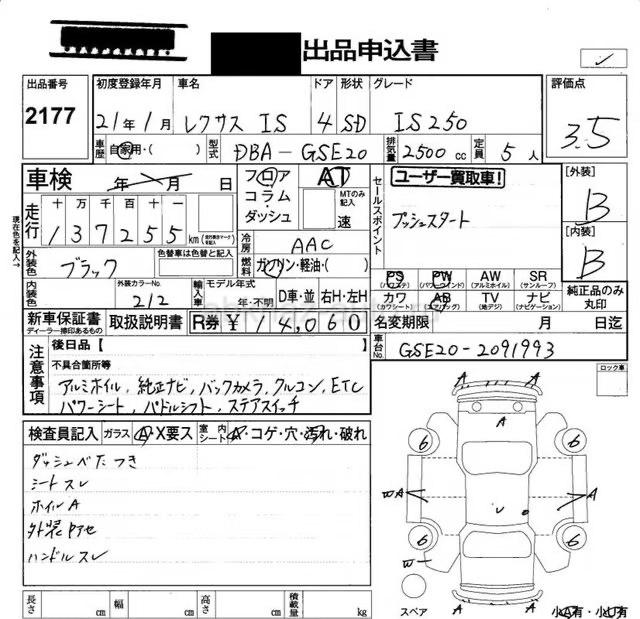 出品申込書
出品番号
2177
初度登録年月
21年1月
車名
レクサス IS
ドア
4
形状
SD
グレード
IS250
評価点
3.5
車歴
自家用・( )
型式
DBA-GSE20
排気量
2500cc
定員
5人
車検
年 月 日
フロア
コラム・
ダッシュ
AT
MTのみ記入
速
セールスポイント
ユーザー買取車!
プッシュスタート
[外装]
B
[内装]
B
純正品のみ
丸印
現在色を記入→
走行
十万千百十一
137255
km
冷房
AAC
燃料
ガソリン・軽油・( )
外装色
ブラック
色替車は色替と記入
内装色
外装カラーNo.
212
輸入車
モデル年式
年・不明
D車・並
右H・左H
PS
(パワステ)
PW
(パワーウインド)
AW
(アルミホイル)
SR
(サンルーフ)
カワ
(カワシート)
AB
(エアバック)
TV
(地デジ)
ナビ
(ナビゲーション)
新車保証書
ディーラー捺印あるもの
取扱説明書
R券
¥14,060
名変期限
月 日迄
車台No.
GSE20-2091993
注意事項
後日品[ ]
不具合箇所等
アルミホイル,純正ナビ,バックカメラ,クルコン,ETC
パワーシート,パドルシフト,ステアスイッチ
ロック車
検査員記入
ガラス
A・X要ス
室内シート
A・コゲ・穴・汚れ・破れ
ダッシュベたつき
シートスレ
ホイルA
外装アセ
ハンドルスレ
A
A
A
6
6
A
A
6
6
A
A
スペア
長さ
cm
幅
cm
高さ
cm
積載量
kg